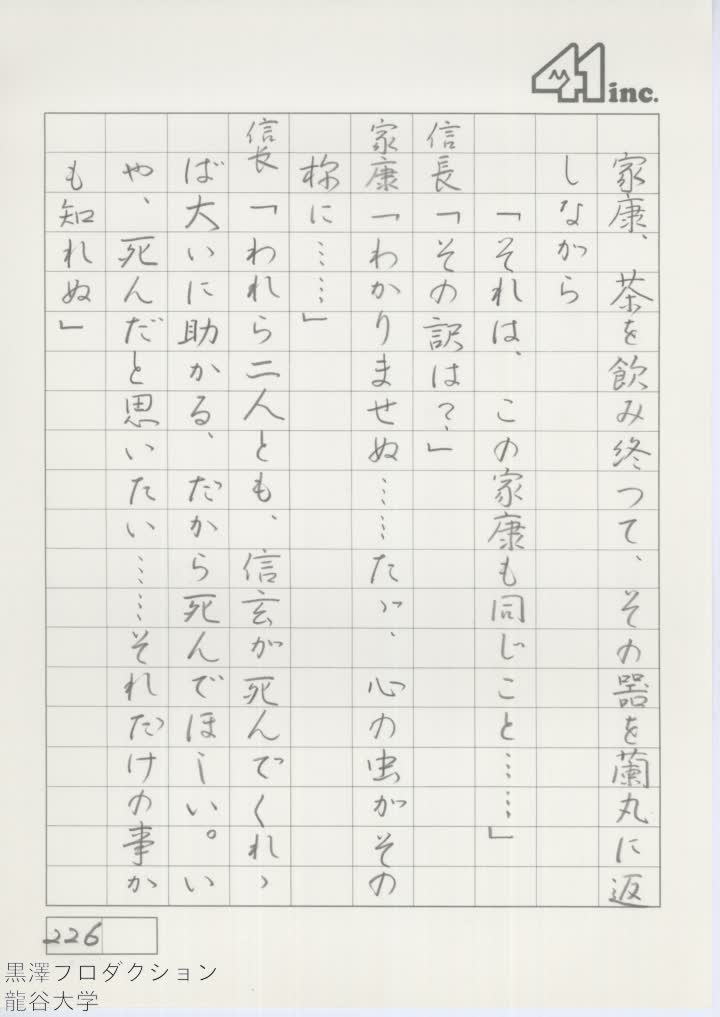 M41 inc.
家康、茶を飲み終つて、その器を蘭丸に返
しながら
「それは、この家康も同じこと……」
信長「その訳は？」
家康「わかりませぬ……たゞ、心の虫がその
様に……」
信長「われら二人とも、信玄が死んでくれゝ
ば大いに助かる、だから死んでほしい。い
や、死んだと思いたい……それだけの事か
も知れぬ」
226
黒澤フロダクション
龍谷大学